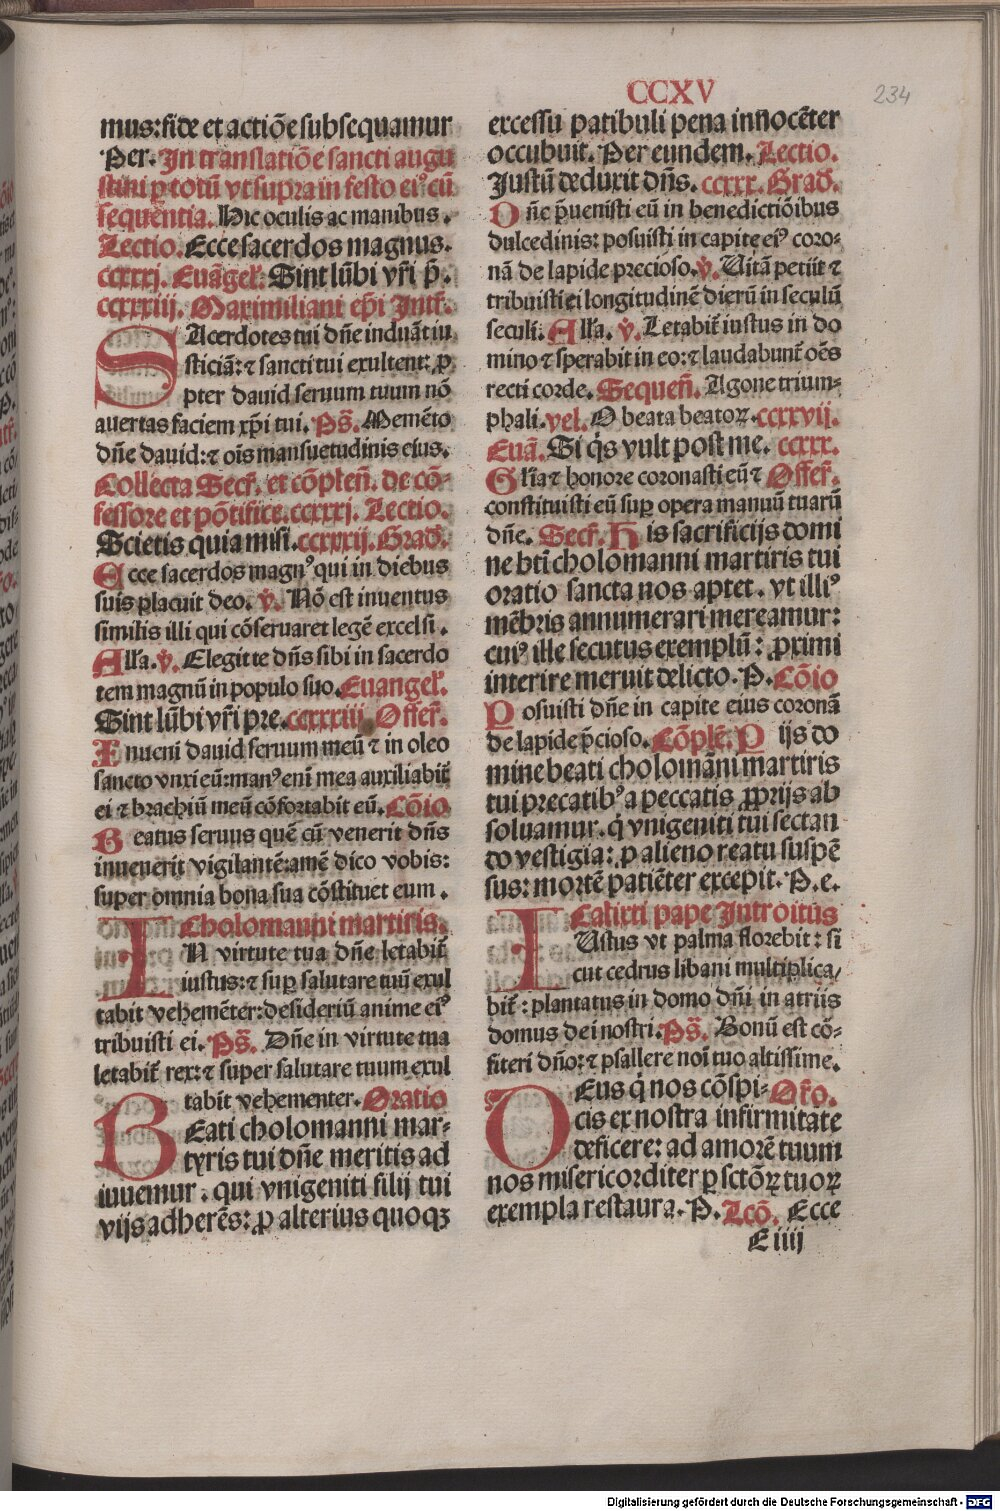 CCXV
234
mus: fide et actiōe subsequamur
Per. In translatiōe sancti augu
stini ꝑ totū vt supra in festo eiꝰ cū
sequentia. Hic oculis ac manibus.
Lectio. Ecce sacerdos magnus.
ccxxxj. Euāgel̄. Sint lūbi vr̄i p̄.
ccxxxiij. Maximiliani ep̄i Intr̄.
SAcerdotes tui dn̄e induāt iu
sticiā: ⁊ sancti tui exultent: ꝓ
pter dauid seruum tuum nō
auertas faciem xp̄i tui. Ps̄. Memēto
dn̄e dauid: ⁊ oīs mansuetudinis eius.
Collecta Secr̄. et cōplen̄. de cō-
fessore et pōtifice. ccxxxj. Lectio.
Scietis quia misi. ccxxxij. Grad̄.
Ecce sacerdos magnꝰ qui in diebus
suis placuit deo. v̄. Nō est inuentus
similis illi qui cōseruaret legē excelsi.
All'a. v̄. Elegit te dn̄s sibi in sacerdo
tem magnū in populo suo. Euangel̄.
Sint lūbi vr̄i pre. ccxxxiij Offer̄.
Inueni dauid seruum meū ⁊ in oleo
sancto vnxi eū: manꝰ enī mea auxiliabit̄
ei ⁊ brachiū meū cōfortabit eū. Cōio
Beatus seruus quē cū venerit dn̄s
inuenerit vigilantē: amē dico vobis:
super omnia bona sua cōstituet eum.
Cholomanni martiris.
IN virtute tua dn̄e letabit̄
iustus: ⁊ suꝑ salutare tuū exul
tabit vehemēter: desideriū anime eiꝰ
tribuisti ei. Ps̄. Dn̄e in virtute tua
letabit̄ rex: ⁊ super salutare tuum exul
tabit vehementer. Oratio
BEati cholomanni mar-
tyris tui dn̄e meritis ad
iuuemur. qui vnigeniti filij tui
vijs adherēs: ꝓ alterius quoqꝫ
excessu patibuli pena innocēter
occubuit. Per eundem. Lectio.
Justū deduxit dn̄s. ccxxx. Grad̄.
Dn̄e p̄uenisti eū in benedictiōibus
dulcedinis: posuisti in capite eiꝰ coro-
nā de lapide precioso. v̄. Uitā petijt ⁊
tribuisti ei longitudinē dierū in seculū
seculi. All'a. v̄. Letabit̄ iustus in do
mino ⁊ sperabit in eo: ⁊ laudabunt̄ oēs
recti corde. Sequen̄. Agone trium-
phali. vel. O beata beatoꝝ. ccxxvij.
Euā. Si q̄s vult post me. ccxxx.
Gl'ia ⁊ honore coronasti eū ⁊ Offer̄.
constituisti eū suꝑ opera manuū tuarū
dn̄e. Secr̄. His sacrificijs domi
ne bt̄i cholomanni martiris tui
oratio sancta nos aptet. vt illiꝰ
mēbris annumerari mereamur:
cuiꝰ ille secutus exemplū: ꝓximi
interire meruit delicto. P. Cōio
Posuisti dn̄e in capite eius coronā
de lapide p̄cioso. Cōplē. Pijs do
mine beati cholomāni martiris
tui precatibꝰ a peccatis ꝓprijs ab
soluamur. q̄ vnigeniti tui sectan
do vestigia: ꝓ alieno reatu suspē
sus: mortē patiēter excepit. P. e.
Calixti pape Introitus
IUstus vt palma florebit: si
cut cedrus libani multiplica/
bit̄: plantatus in domo dn̄i in atriis
domus dei nostri. Ps̄. Bonū est cō-
fiteri dn̄o: ⁊ psallere noī tuo altissime.
DEus q̄ nos cōspi- Or̄o.
cis ex nostra infirmitate
deficere: ad amorē tuum
nos misericorditer ꝑ sctōꝝ tuoꝝ
exempla restaura. P. Lcō. Ecce
E iiij
Digitalisierung gefördert durch die Deutsche Forschungsgemeinschaft - DFG